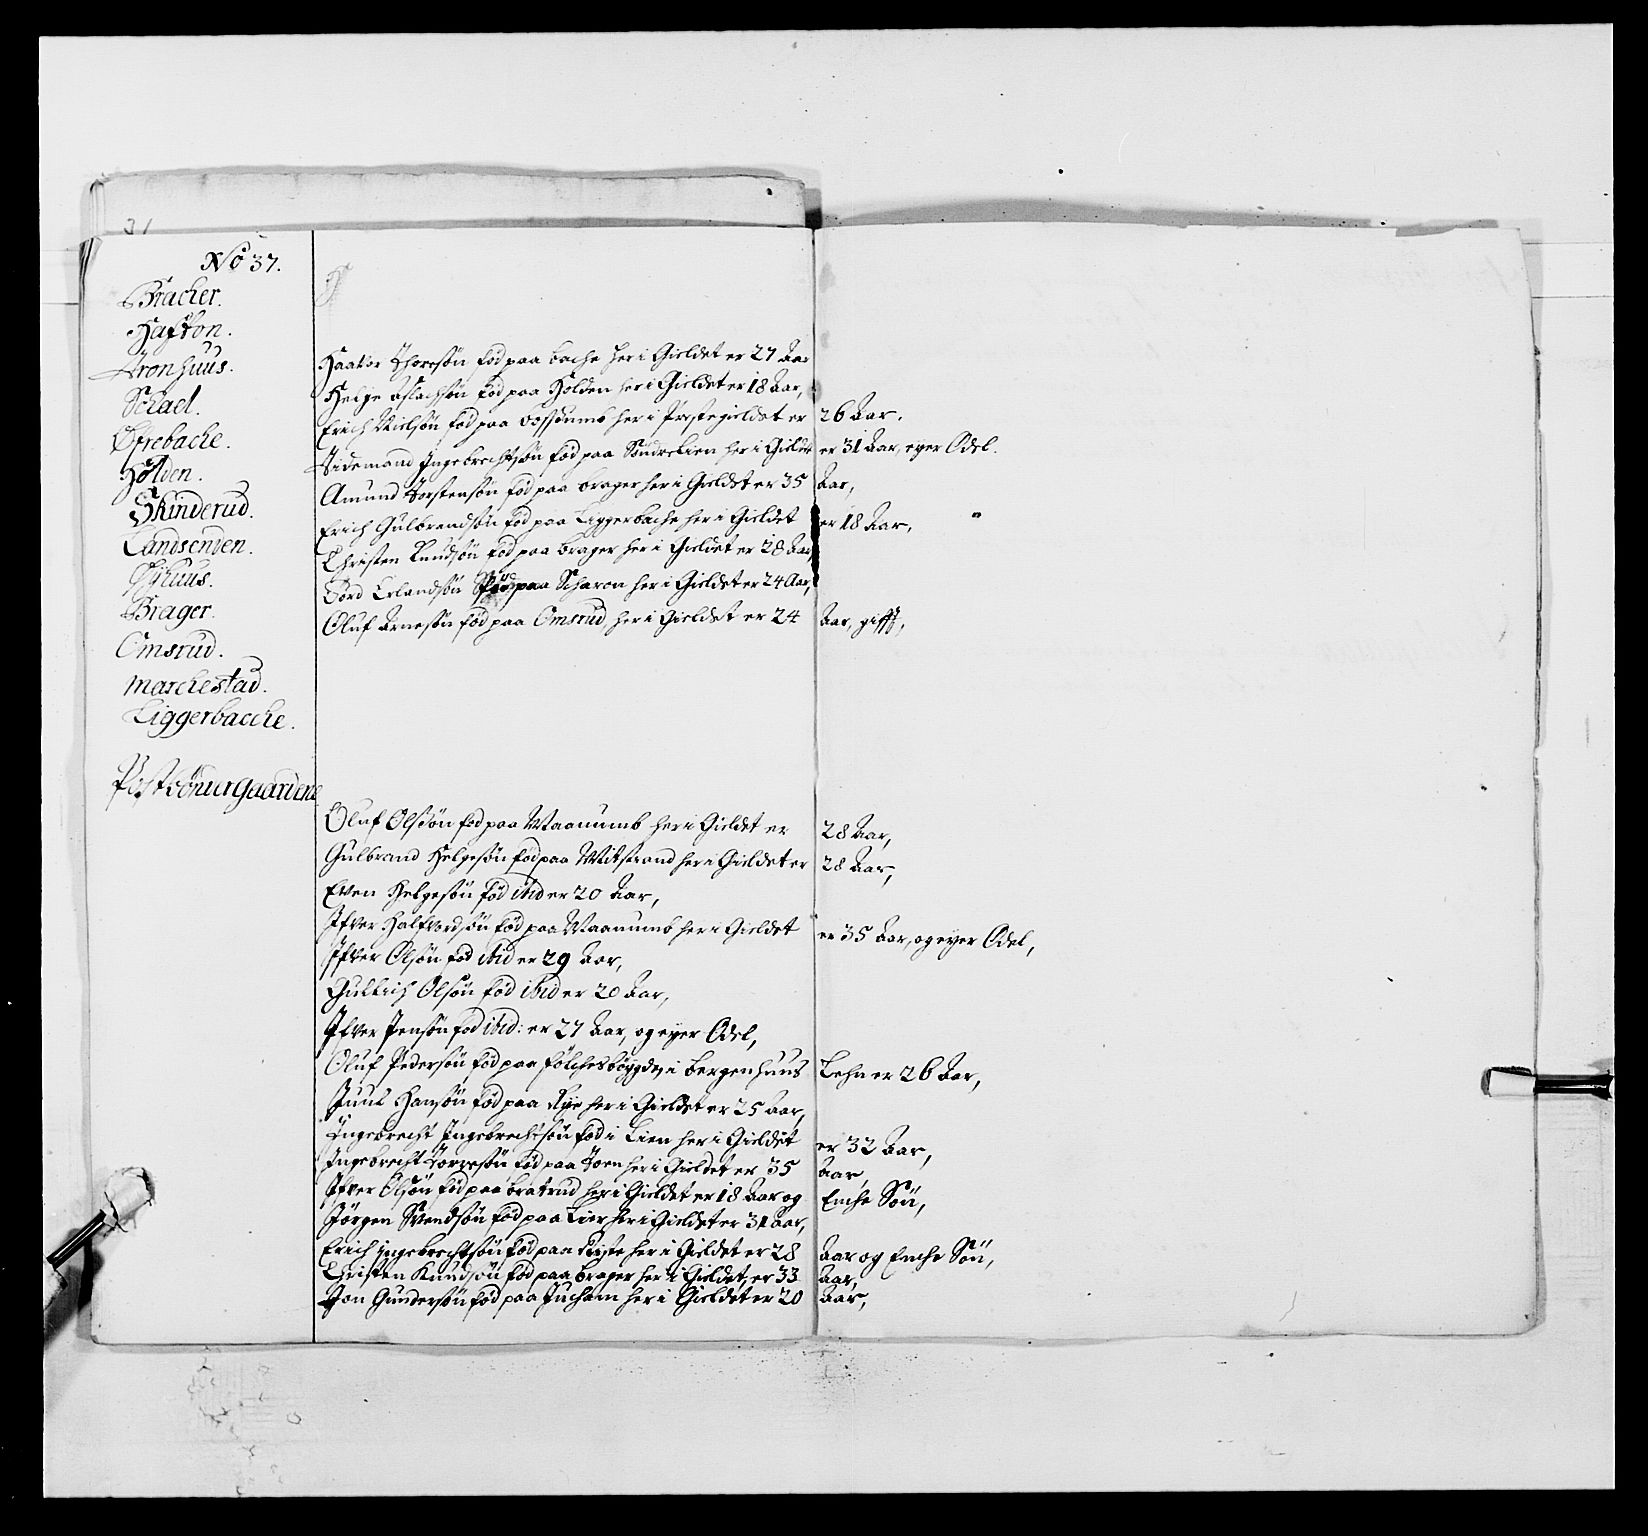 31
No 37.
Bracher.
Hafton.
Kronhuus.
Schael.
Øfrebache.
Holden.
Skinderud.
Landsenden.
Øÿhuus.
Brager.
Omsrud.
Marchestad.
Liggerbache.
Haator Thoresön föd paa bache her i Gieldet er 27 Aar
Helge Aslachsön föd paa Holden her i Gieldet er 18 Aar,
Erich Nielsön föd paa her i Præstegieldet er 26 Aar.
Tidemand Ingebrechtsön föd paa SöndreLien her i Gieldet er 31 Aar, eger Odel.
Amund Torstensön föd paa brager her i Gieldet er 35 Aar,
Erich Gulbrandsön föd paa Liggerbache her i Gieldet er 18 Aar,
Christen Knudsön föd paa brager her i Gieldet er 28 Aar,
Tord Erlandsön föd paa her i Gieldet er 24 Aar,
Oluf Arnesön föd paa Omsrud, her i Gieldet er 24 Aar, gifft,
Postbönnergaardene
Oluf Olsön föd paa Maanumb her i Gieldet er 28 Aar,
Gulbrand Helgesön föd paa her i Gieldet er 28 Aar,
Even Helgesön föd ibid er 20 Aar,
Ifver Halfvordsön föd paa Maanumb her i Gieldet er 35 Aar, og eyer Odel,
Ifver Olsön föd ibid er 29 Aar,
Gulbrich Olsön föd ibid er 20 Aar,
Ifver Jensön föd ibid: er 27 Aar, og eyer Odel,
Oluf Pedersön föd paa i bergenhuus Lehn er 26 Aar,
Juul Hansön föd paa Rÿe her i Gieldet er 25 Aar,
Ingebrecht Ingebrechtsön föd i Lien her i Gieldet er 32 Aar,
Ingebrecht föd paa her i Gieldet er 35 Aar,
Ifver Olsön föd paa bratrud her i Gieldet er 18 Aar og Enche Sön,
Jörgen Svendsön föd paa Lier her i Gieldet er 31 Aar,
Erich Ingebrechtsön föd paa her i Gieldet er 28 Aar og Enche Sön,
Christen Knudsön föd paa brager her i Gieldet, er 33 Aar,
Jon Gundersön föd paa Jucham her i Gieldet er 20 Aar,